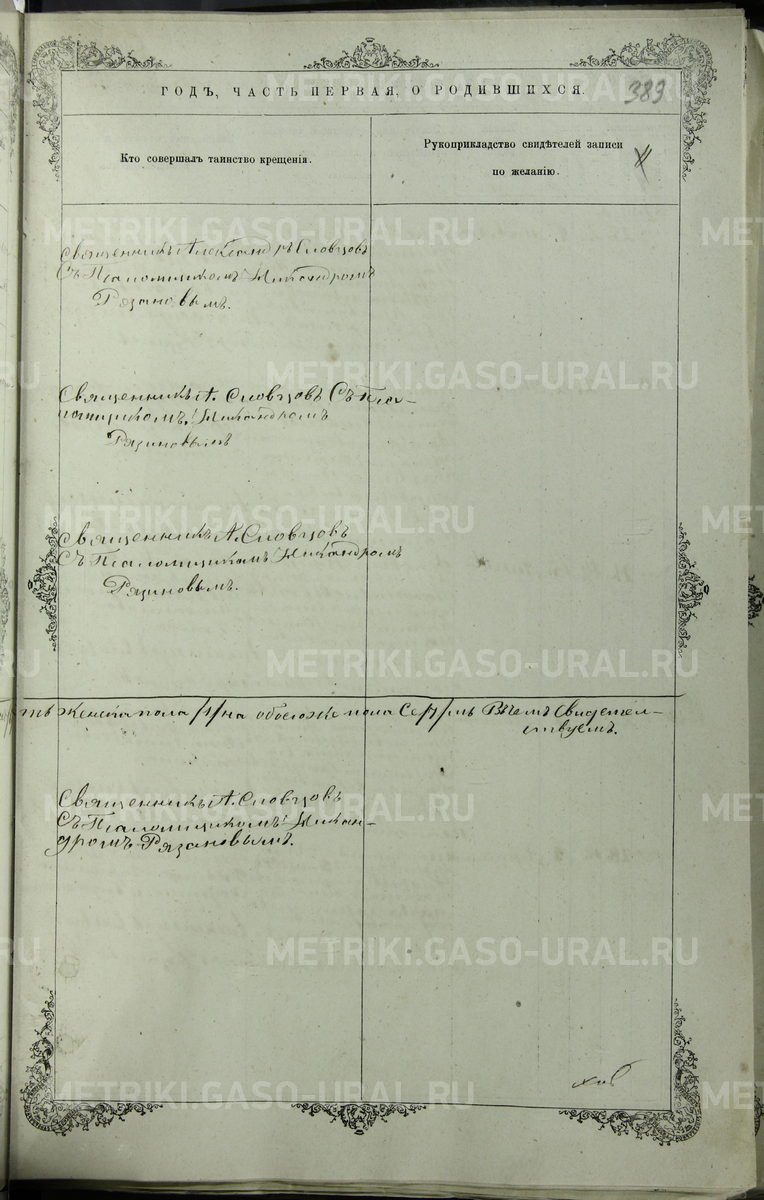 ГОДЪ, ЧАСТЬ ПЕРВАЯ, О РОДИВШИХСЯ.
383
Кто совершалъ таинство крещенія.
Рукоприкладство свидѣтелей записи
по желанію.
Священникъ Александръ Словцовъ
Съ Псаломщикомъ Никандромъ
Рязановымъ.
Священникъ А. Словцовъ Съ Пса-
ломщикомъ Никандромъ
Рязановымъ
Священникъ А. Словцовъ
Съ Псаломщикомъ Никандромъ
Рязановымъ.
женска пола /4/ на обоего же пола Се/7/мь Въ чемъ Свидетель-
ствуемъ.
Священникъ А. Словцовъ
Съ Псаломщикомъ Никан-
дромъ Рязановымъ.
METRIKI.GASO-URAL.RU